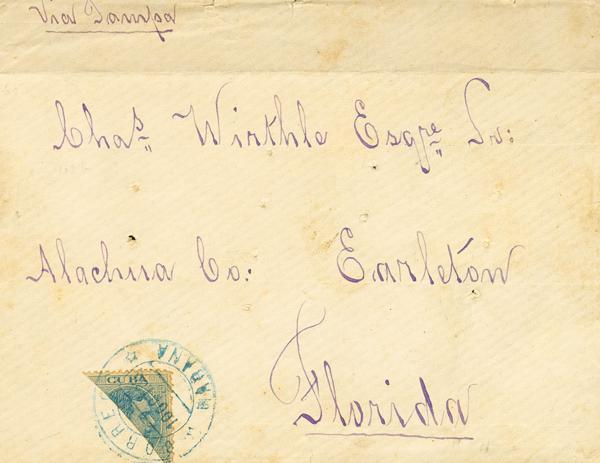 Via Tampa
Chas. Wirkhle Esqre. Sr:
Alachua Co: Earletón
Florida
CUBA
HABANA